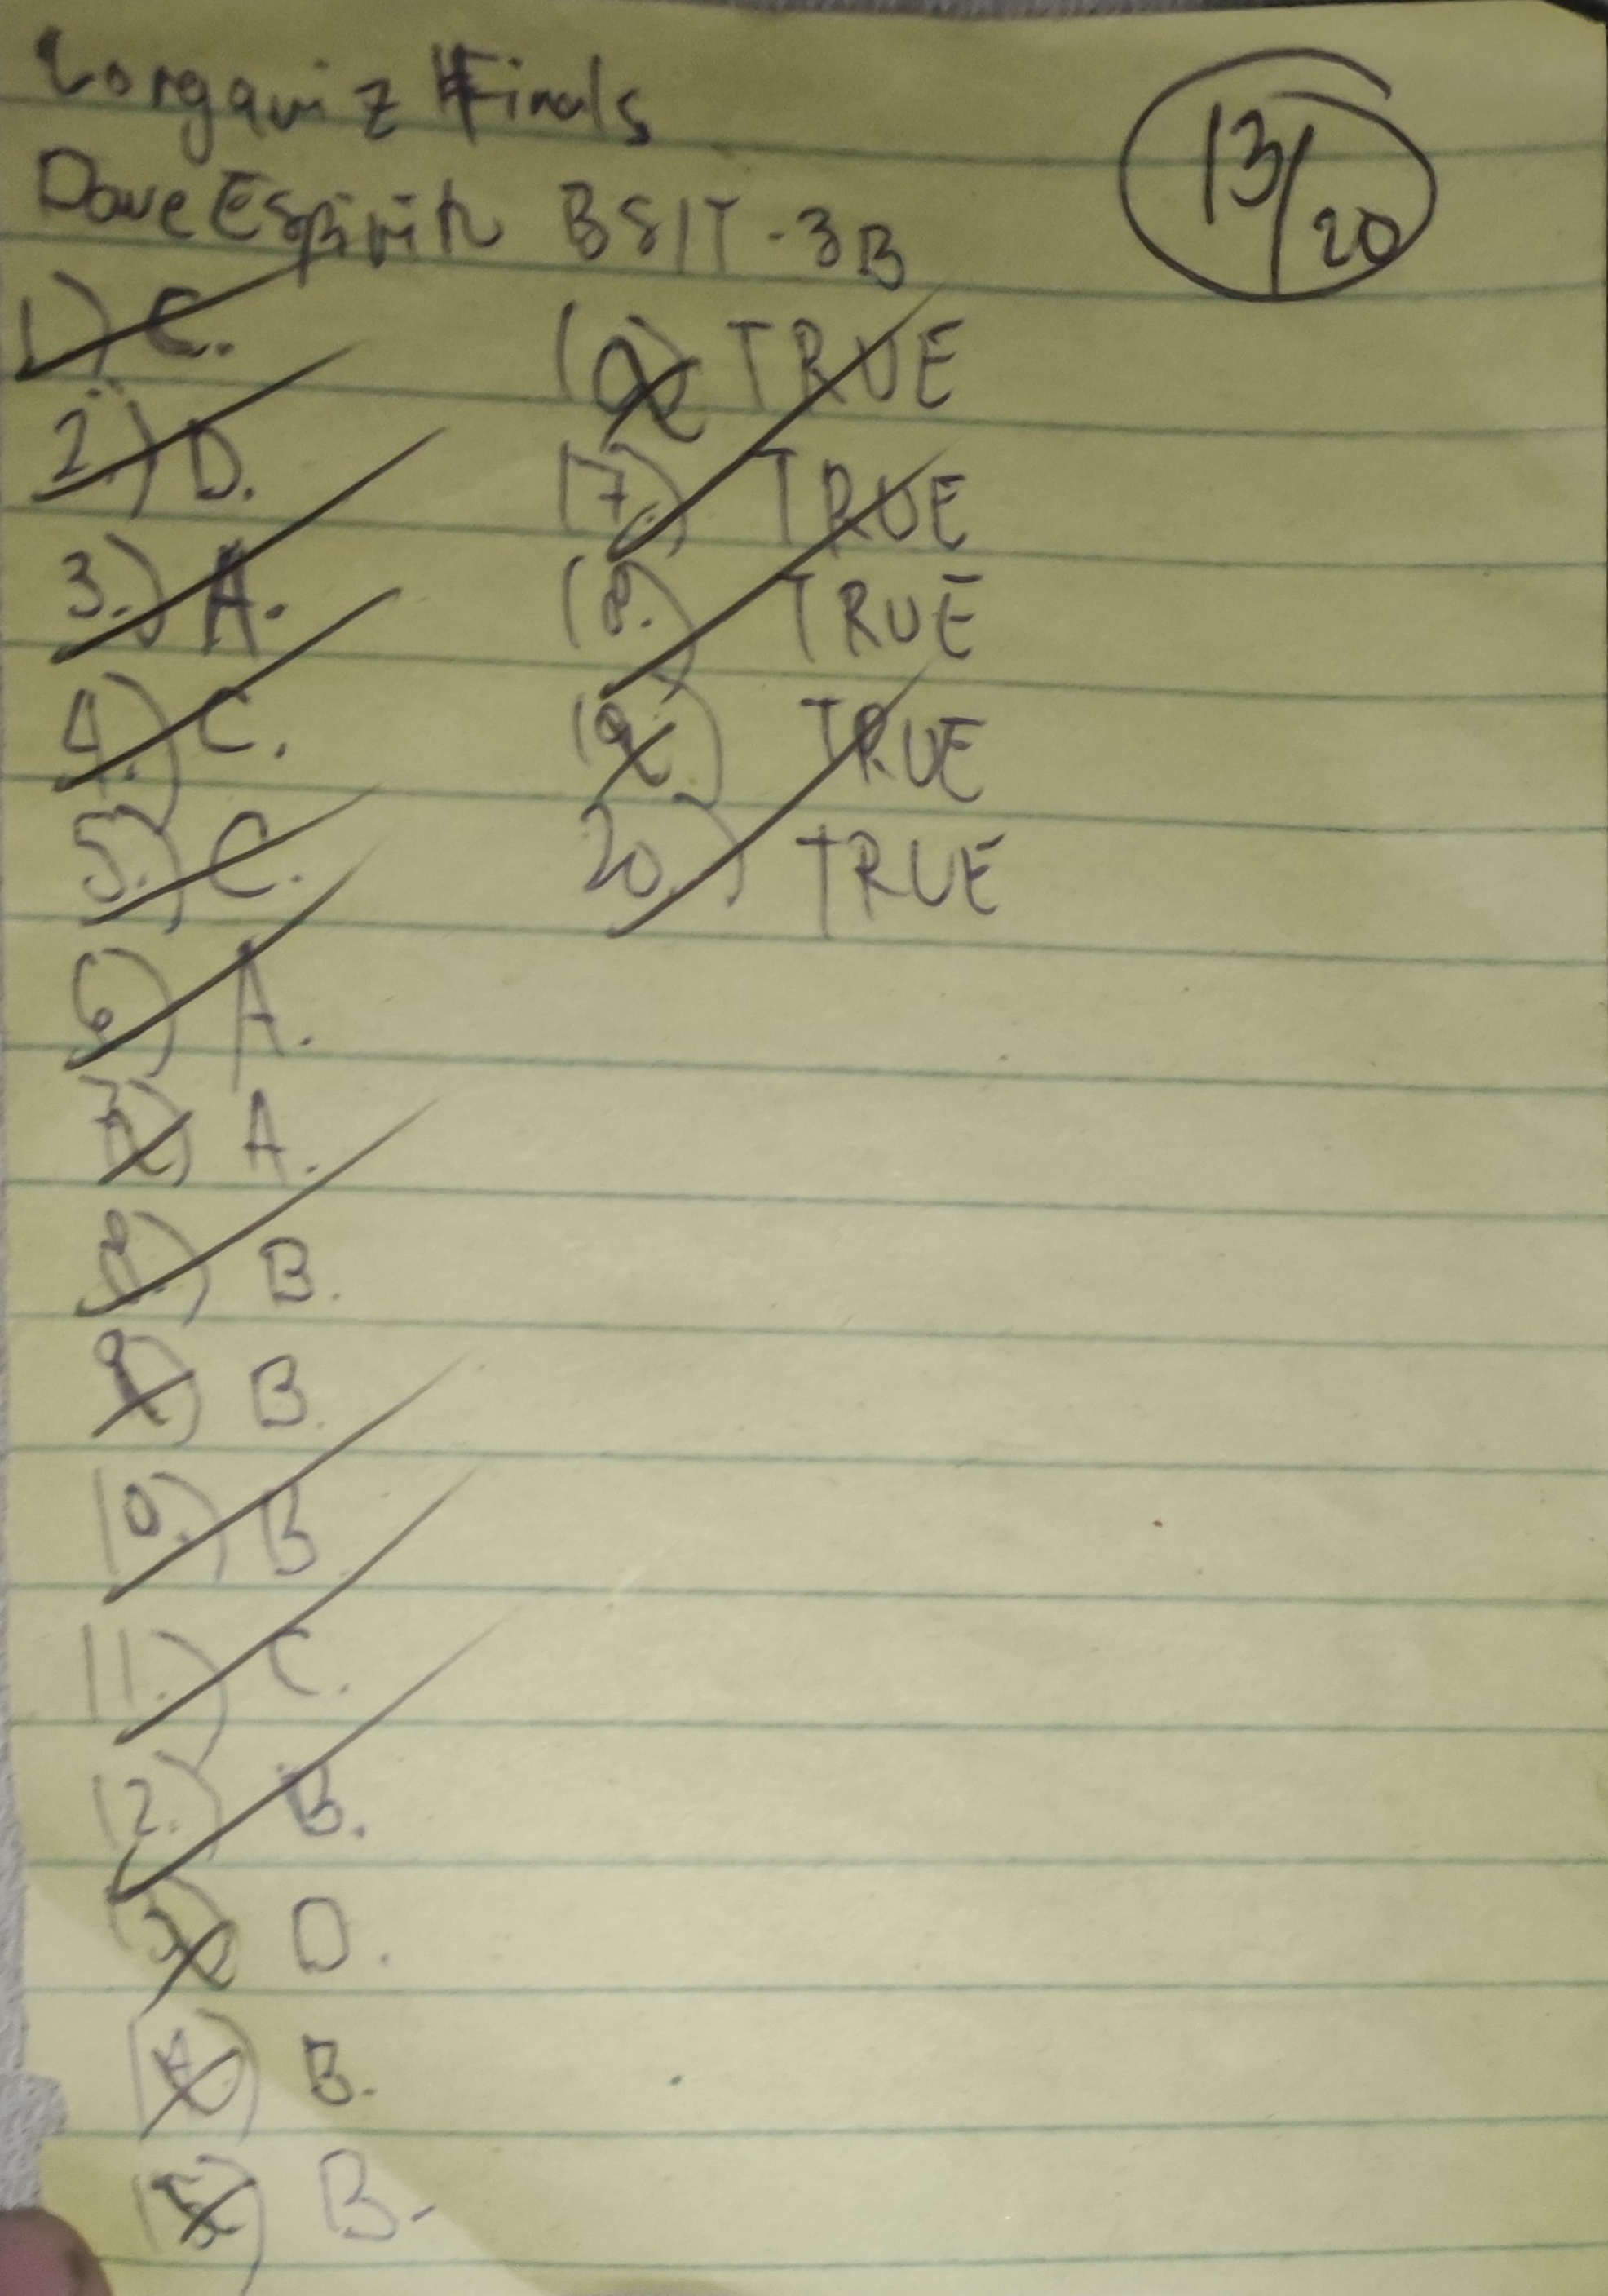 Longquiz Finals
13/20
Dave Espiritu BSIT-3B
1.) C.
2.) D.
3.) A.
4.) C.
5.) C.
6.) A.
7.) A.
8.) B.
9.) B.
10.) B
11.) C.
12.) B.
13.) D.
14.) B.
15.) B.
16.) TRUE
17.) TRUE
18.) TRUE
19.) TRUE
20.) TRUE